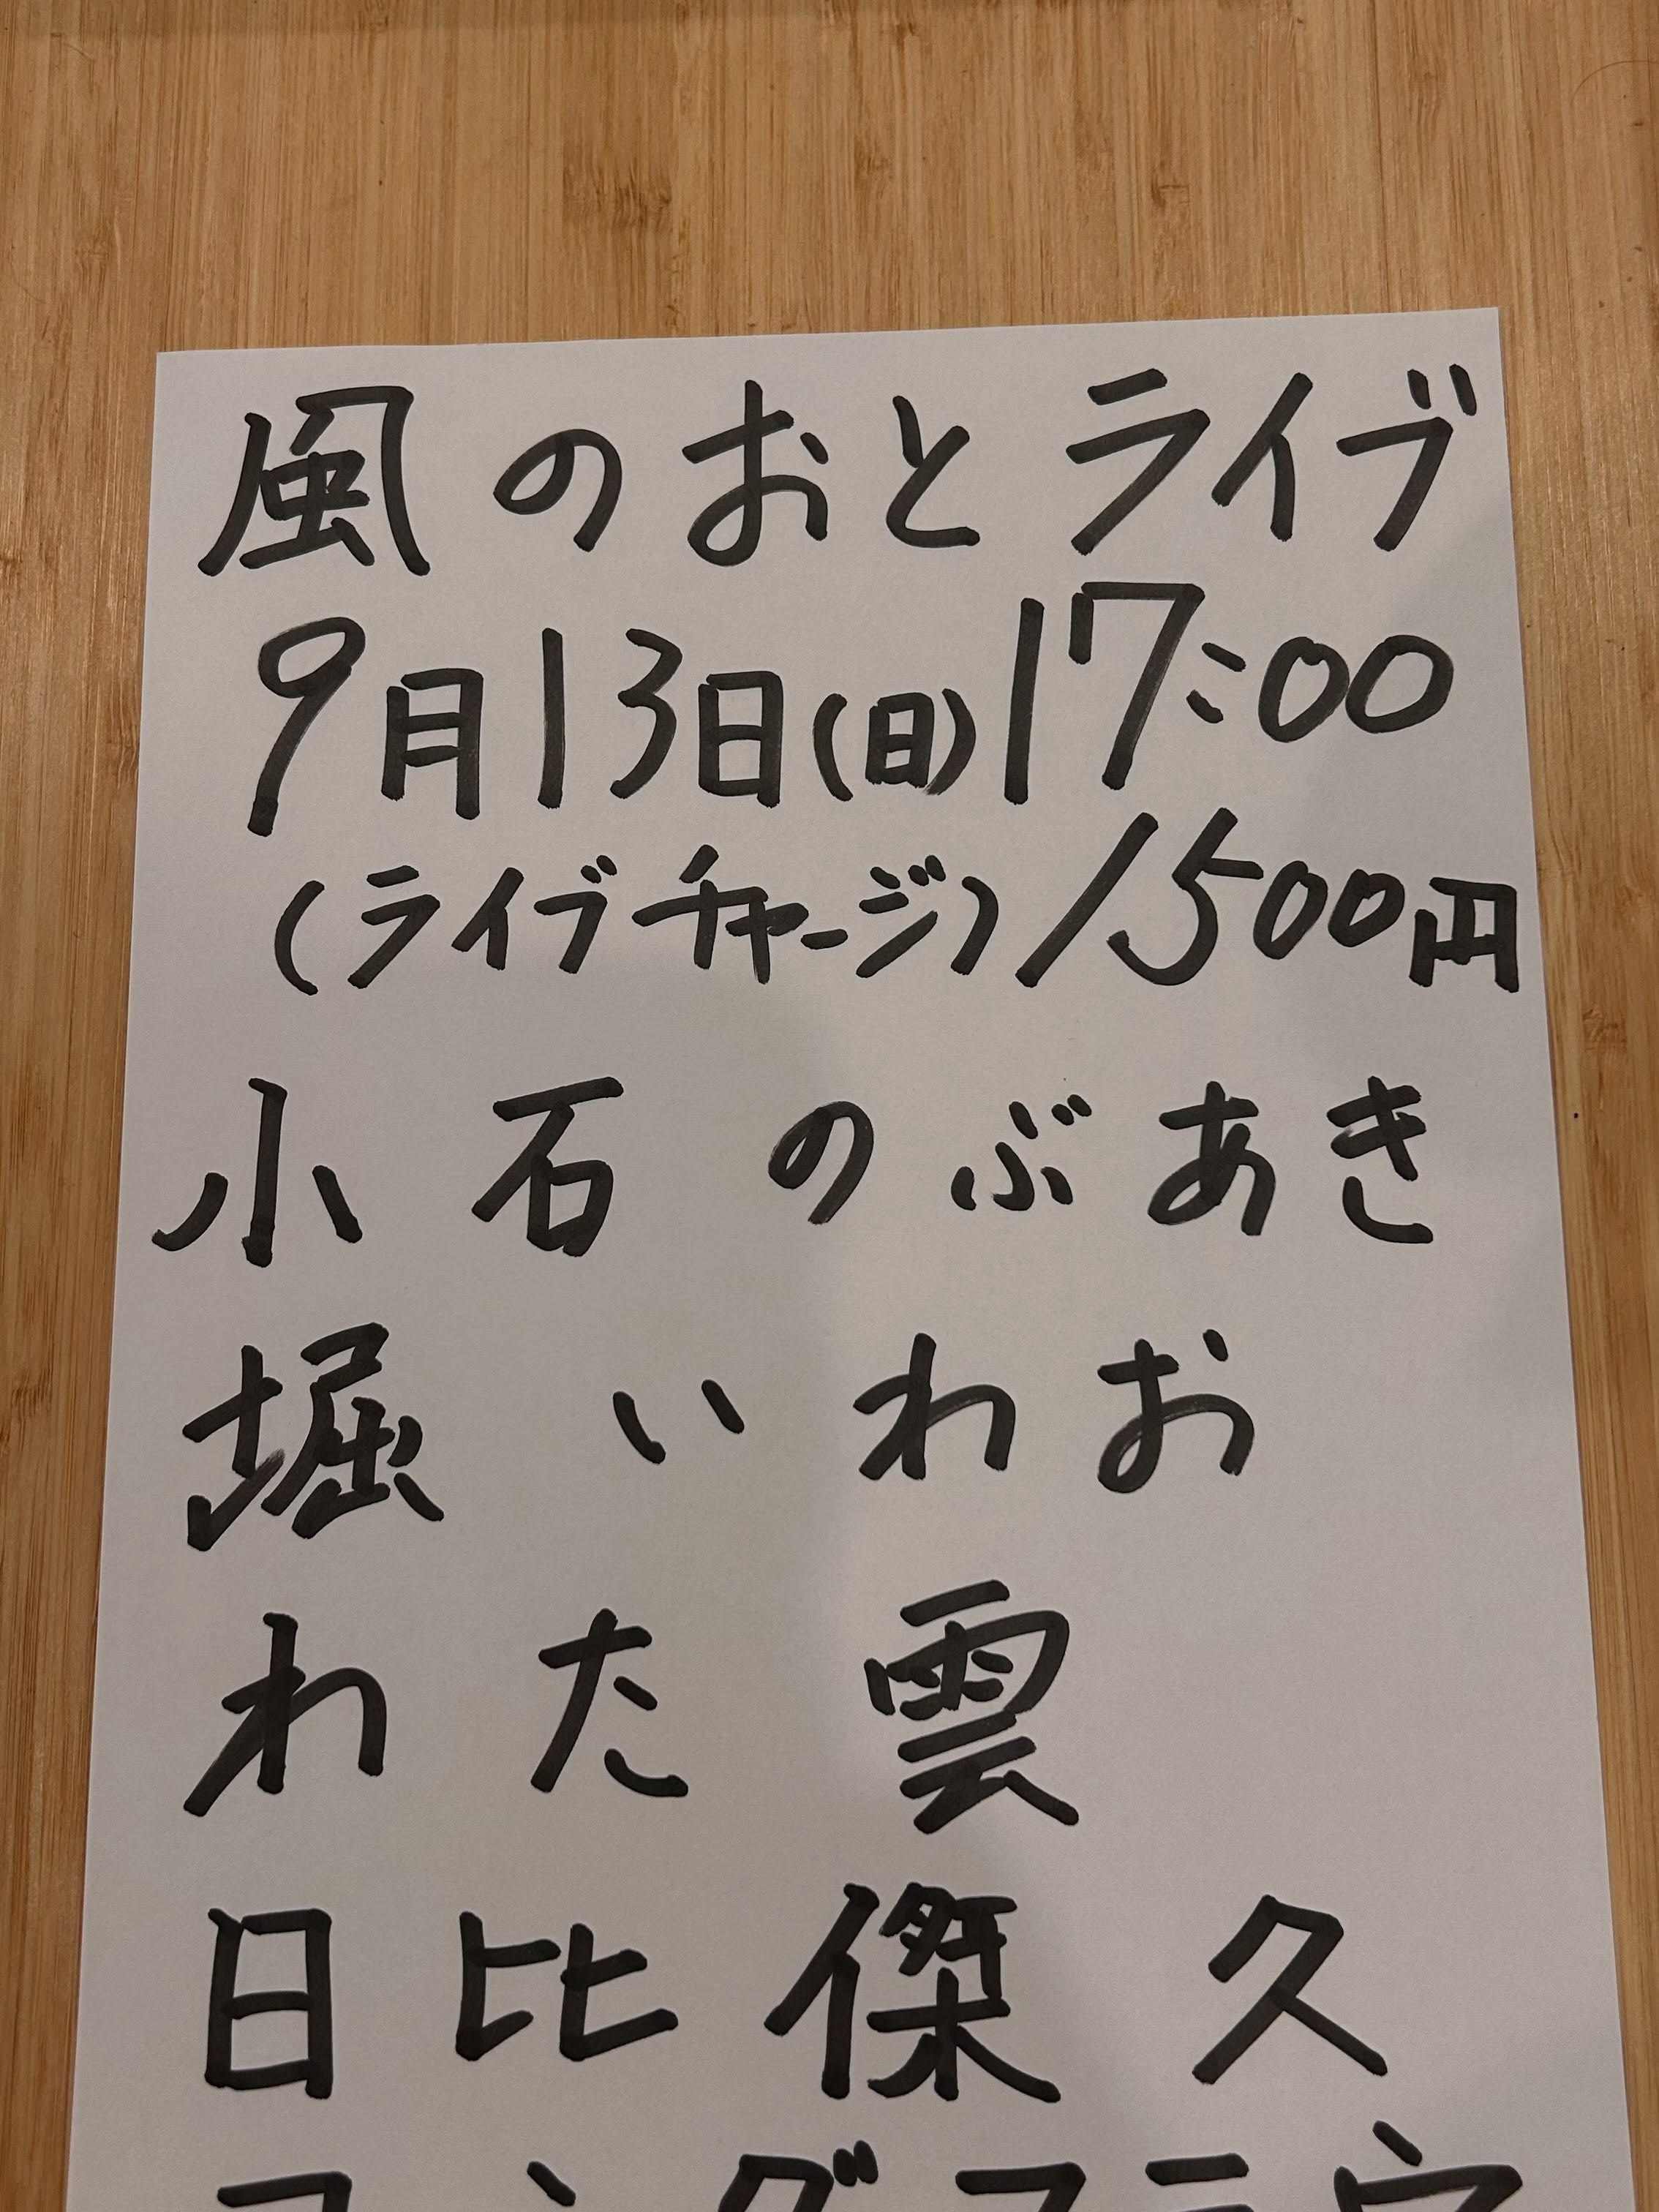 風のおとライブ
9月13日(日)17:00
(ライブチャージ)1500円
小石のぶあき
堀いわお
わた雲
日比傑久